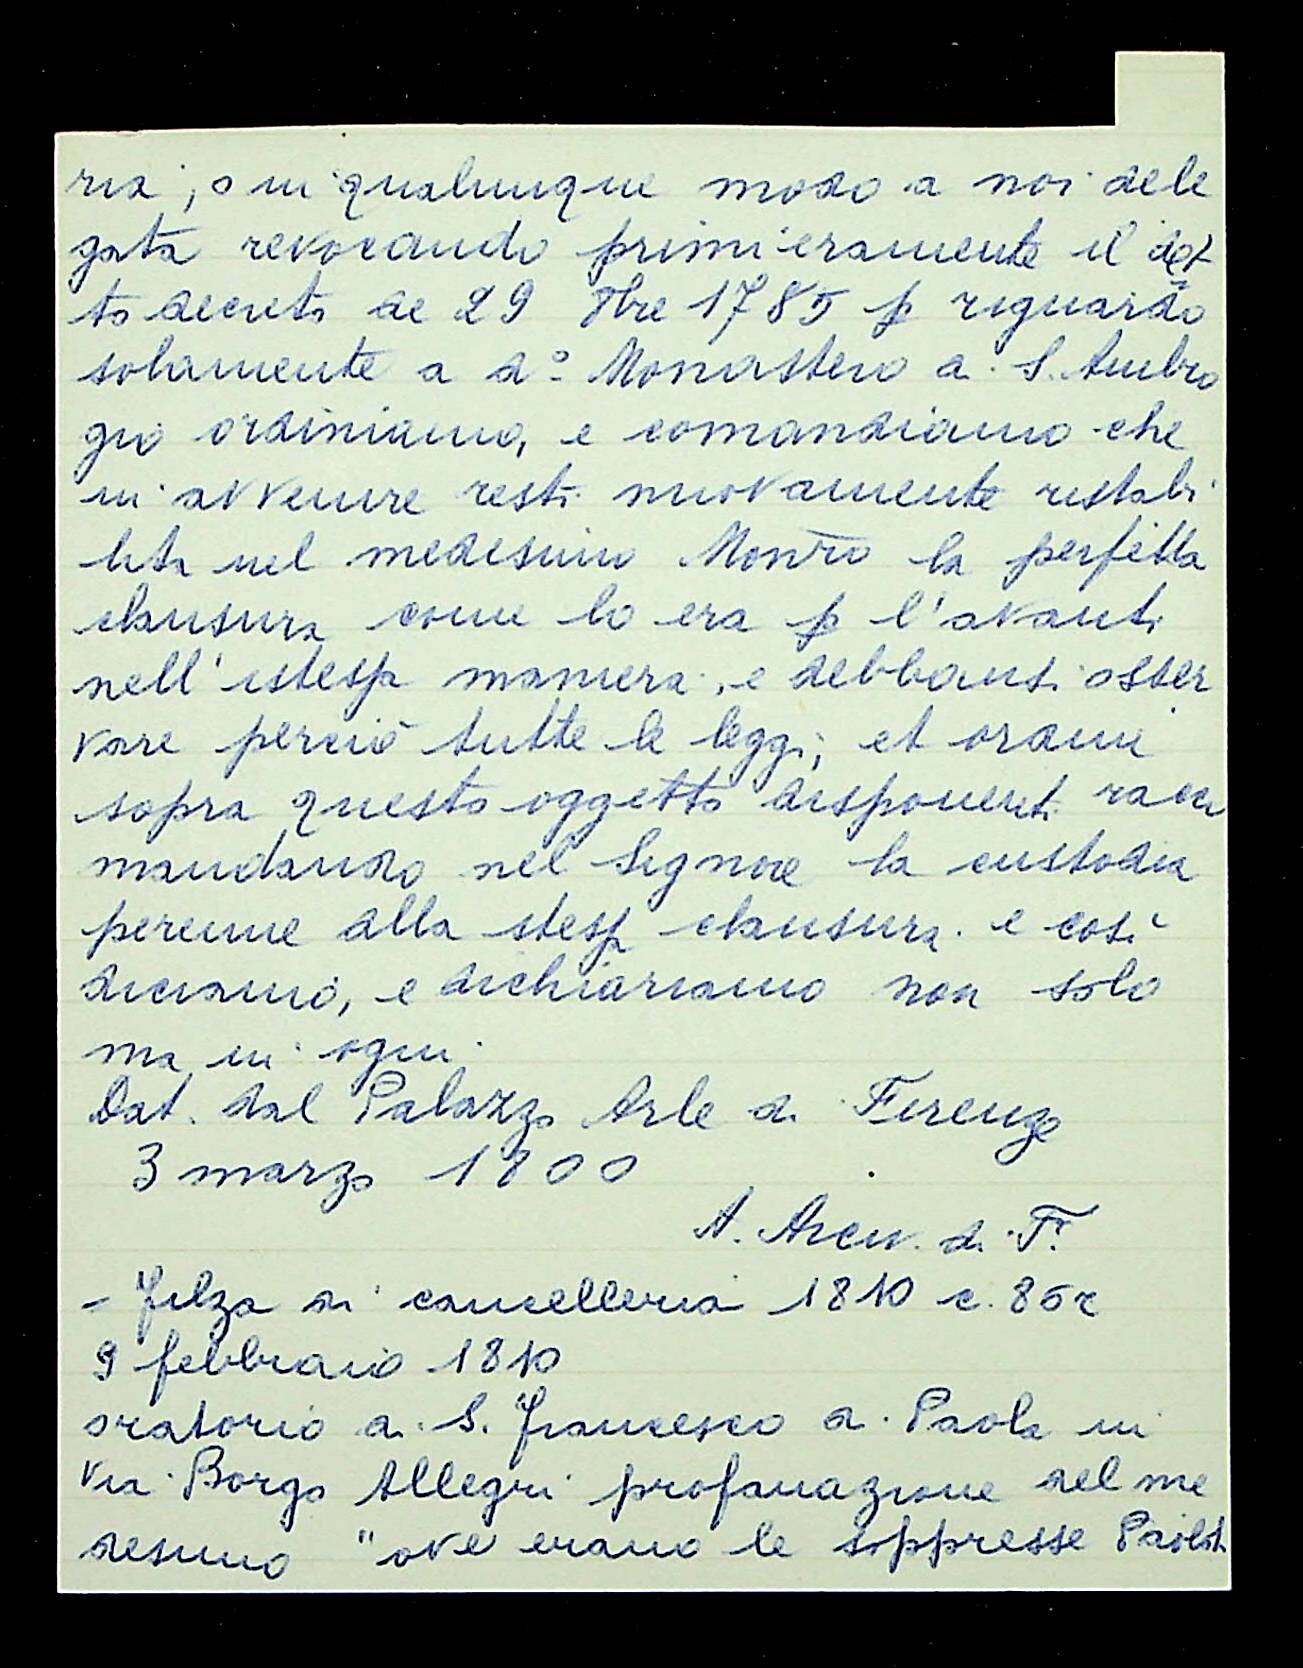 ria, o in qualunque modo a noi dele
gata revocando primieramente il det
to decreto de 29 8bre 1785 p riguardo
solamente a do. Monastero di S. Ambro
gio ordiniamo, e comandiamo che
in avvenire resti nuovamente ristabi
lita nel medesimo Monro la perfetta
clausura come lo era p l'avanti
nell'istessa maniera, e debbansi osser
vare perciò tutte le leggi, et ordini
sopra questo oggetto disponenti racco
mandando nel Signore la custodia
perenne alla stessa clausura e così
diciamo, e dichiariamo non solo
ma in ogni
Dat. dal Palazzo Arle di Firenze
3 marzo 1800
A. Arciv. di F.
- Filza di cancelleria 1810 c. 85r
9 febbraio 1810
oratorio di S. Francesco di Paola in
Via Borgo Allegri profanazione del me
desimo "ove erano le soppresse Paolot